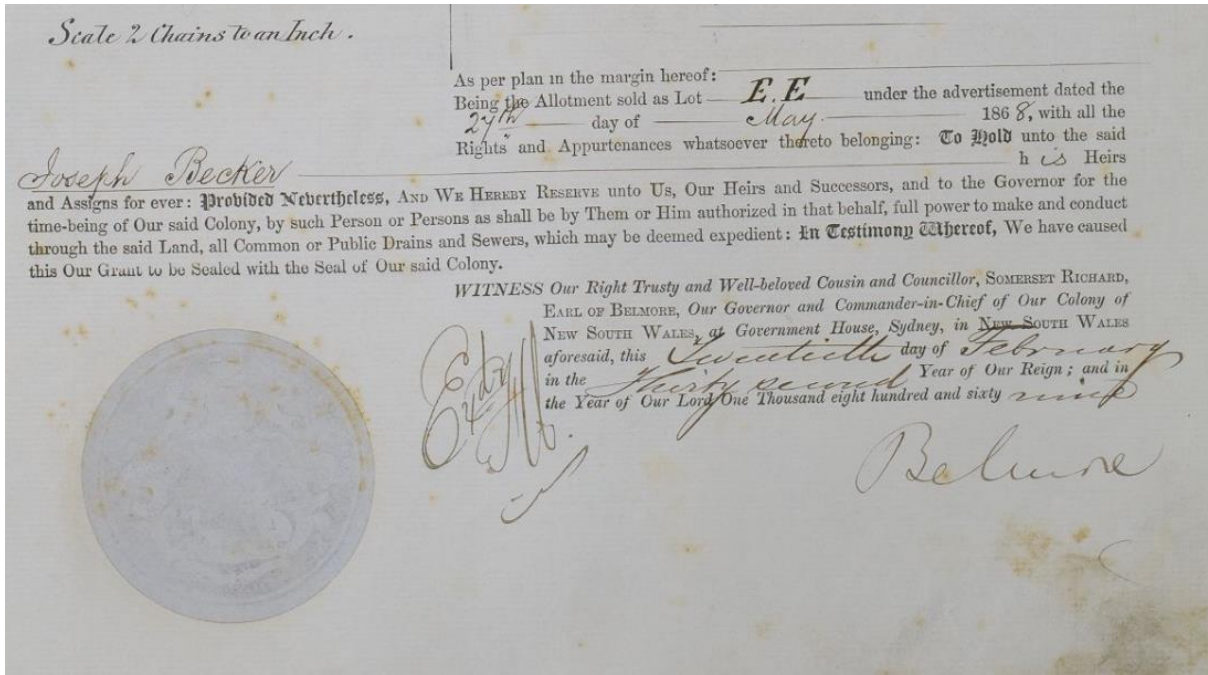 Scale 2 Chains to an Inch.
As per plan in the margin hereof:
Being the Allotment sold as Lot E.E under the advertisement dated the
27th day of May 1868, with all the
Rights and Appurtenances whatsoever thereto belonging: To Hold unto the said
Joseph Becker his Heirs
and Assigns for ever: Provided Nevertheless, AND WE HEREBY RESERVE unto Us, Our Heirs and Successors, and to the Governor for the
time-being of Our said Colony, by such Person or Persons as shall be by Them or Him authorized in that behalf, full power to make and conduct
through the said Land, all Common or Public Drains and Sewers, which may be deemed expedient: In Testimony Whereof, We have caused
this Our Grant to be Sealed with the Seal of Our said Colony.
WITNESS Our Right Trusty and Well-beloved Cousin and Councillor, SOMERSET RICHARD,
EARL OF BELMORE, Our Governor and Commander-in-Chief of Our Colony of
NEW SOUTH WALES, at Government House, Sydney, in NEW SOUTH WALES
aforesaid, this Twentieth day of February
in the Thirty second Year of Our Reign; and in
the Year of Our Lord One Thousand eight hundred and sixty nine
Belmore